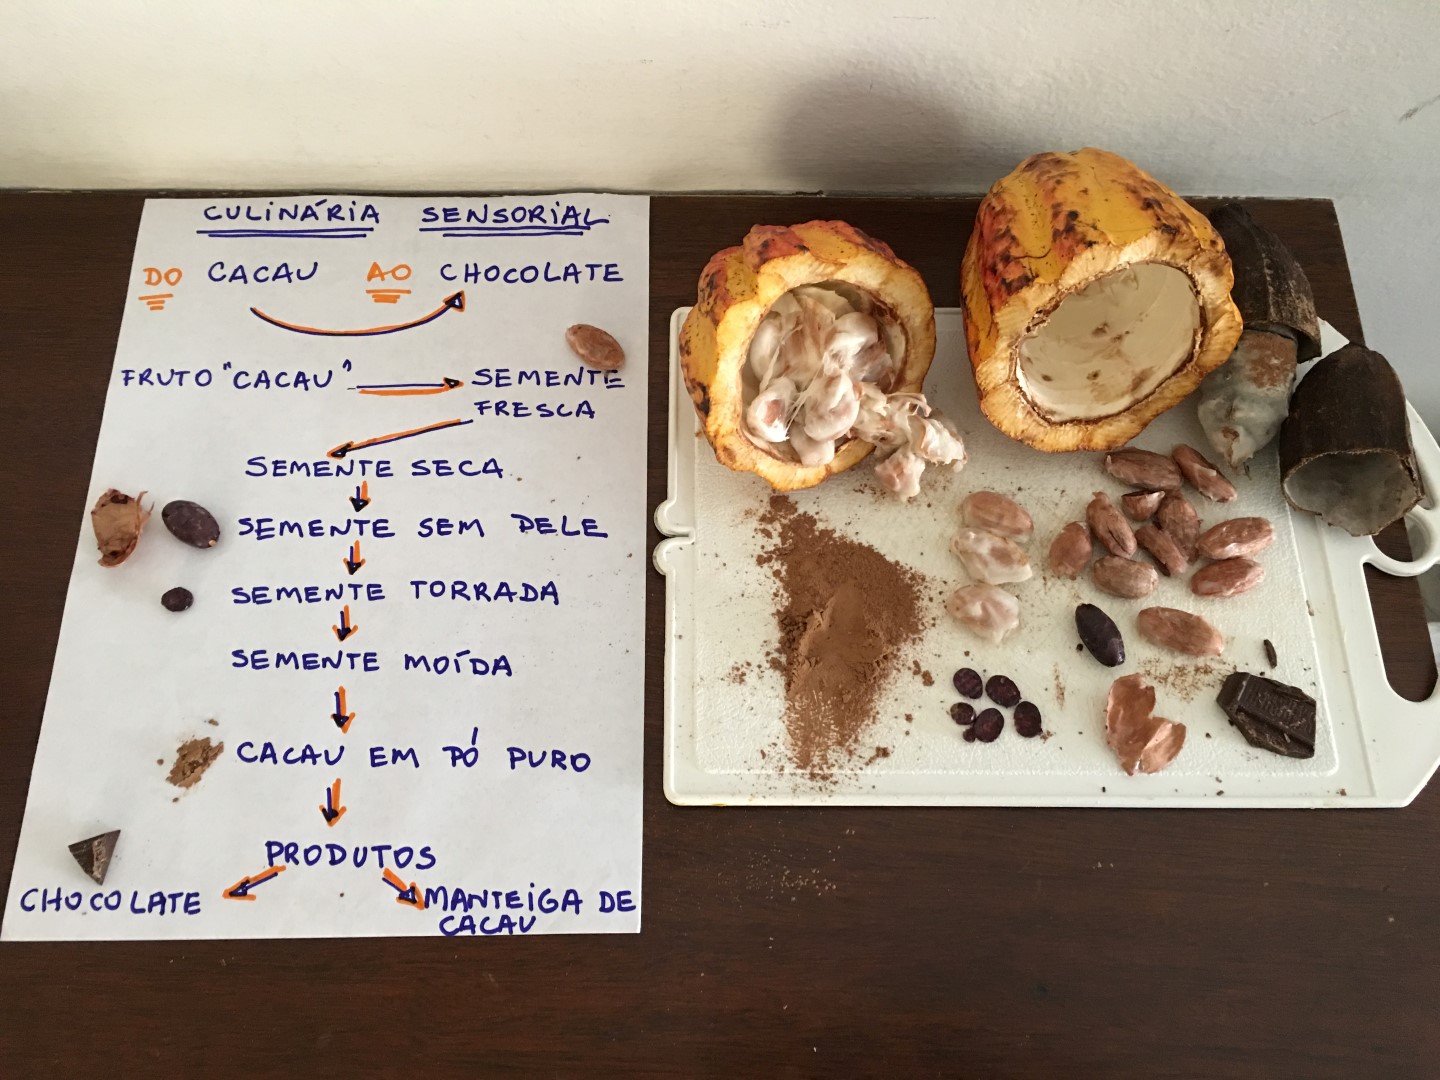 CULINÁRIA SENSORIAL
DO CACAU AO CHOCOLATE
FRUTO "CACAU" SEMENTE
FRESCA
SEMENTE SECA
SEMENTE SEM PELE
SEMENTE TORRADA
SEMENTE MOÍDA
CACAU EM PÓ PURO
PRODUTOS
CHOCOLATE MANTEIGA DE
CACAU